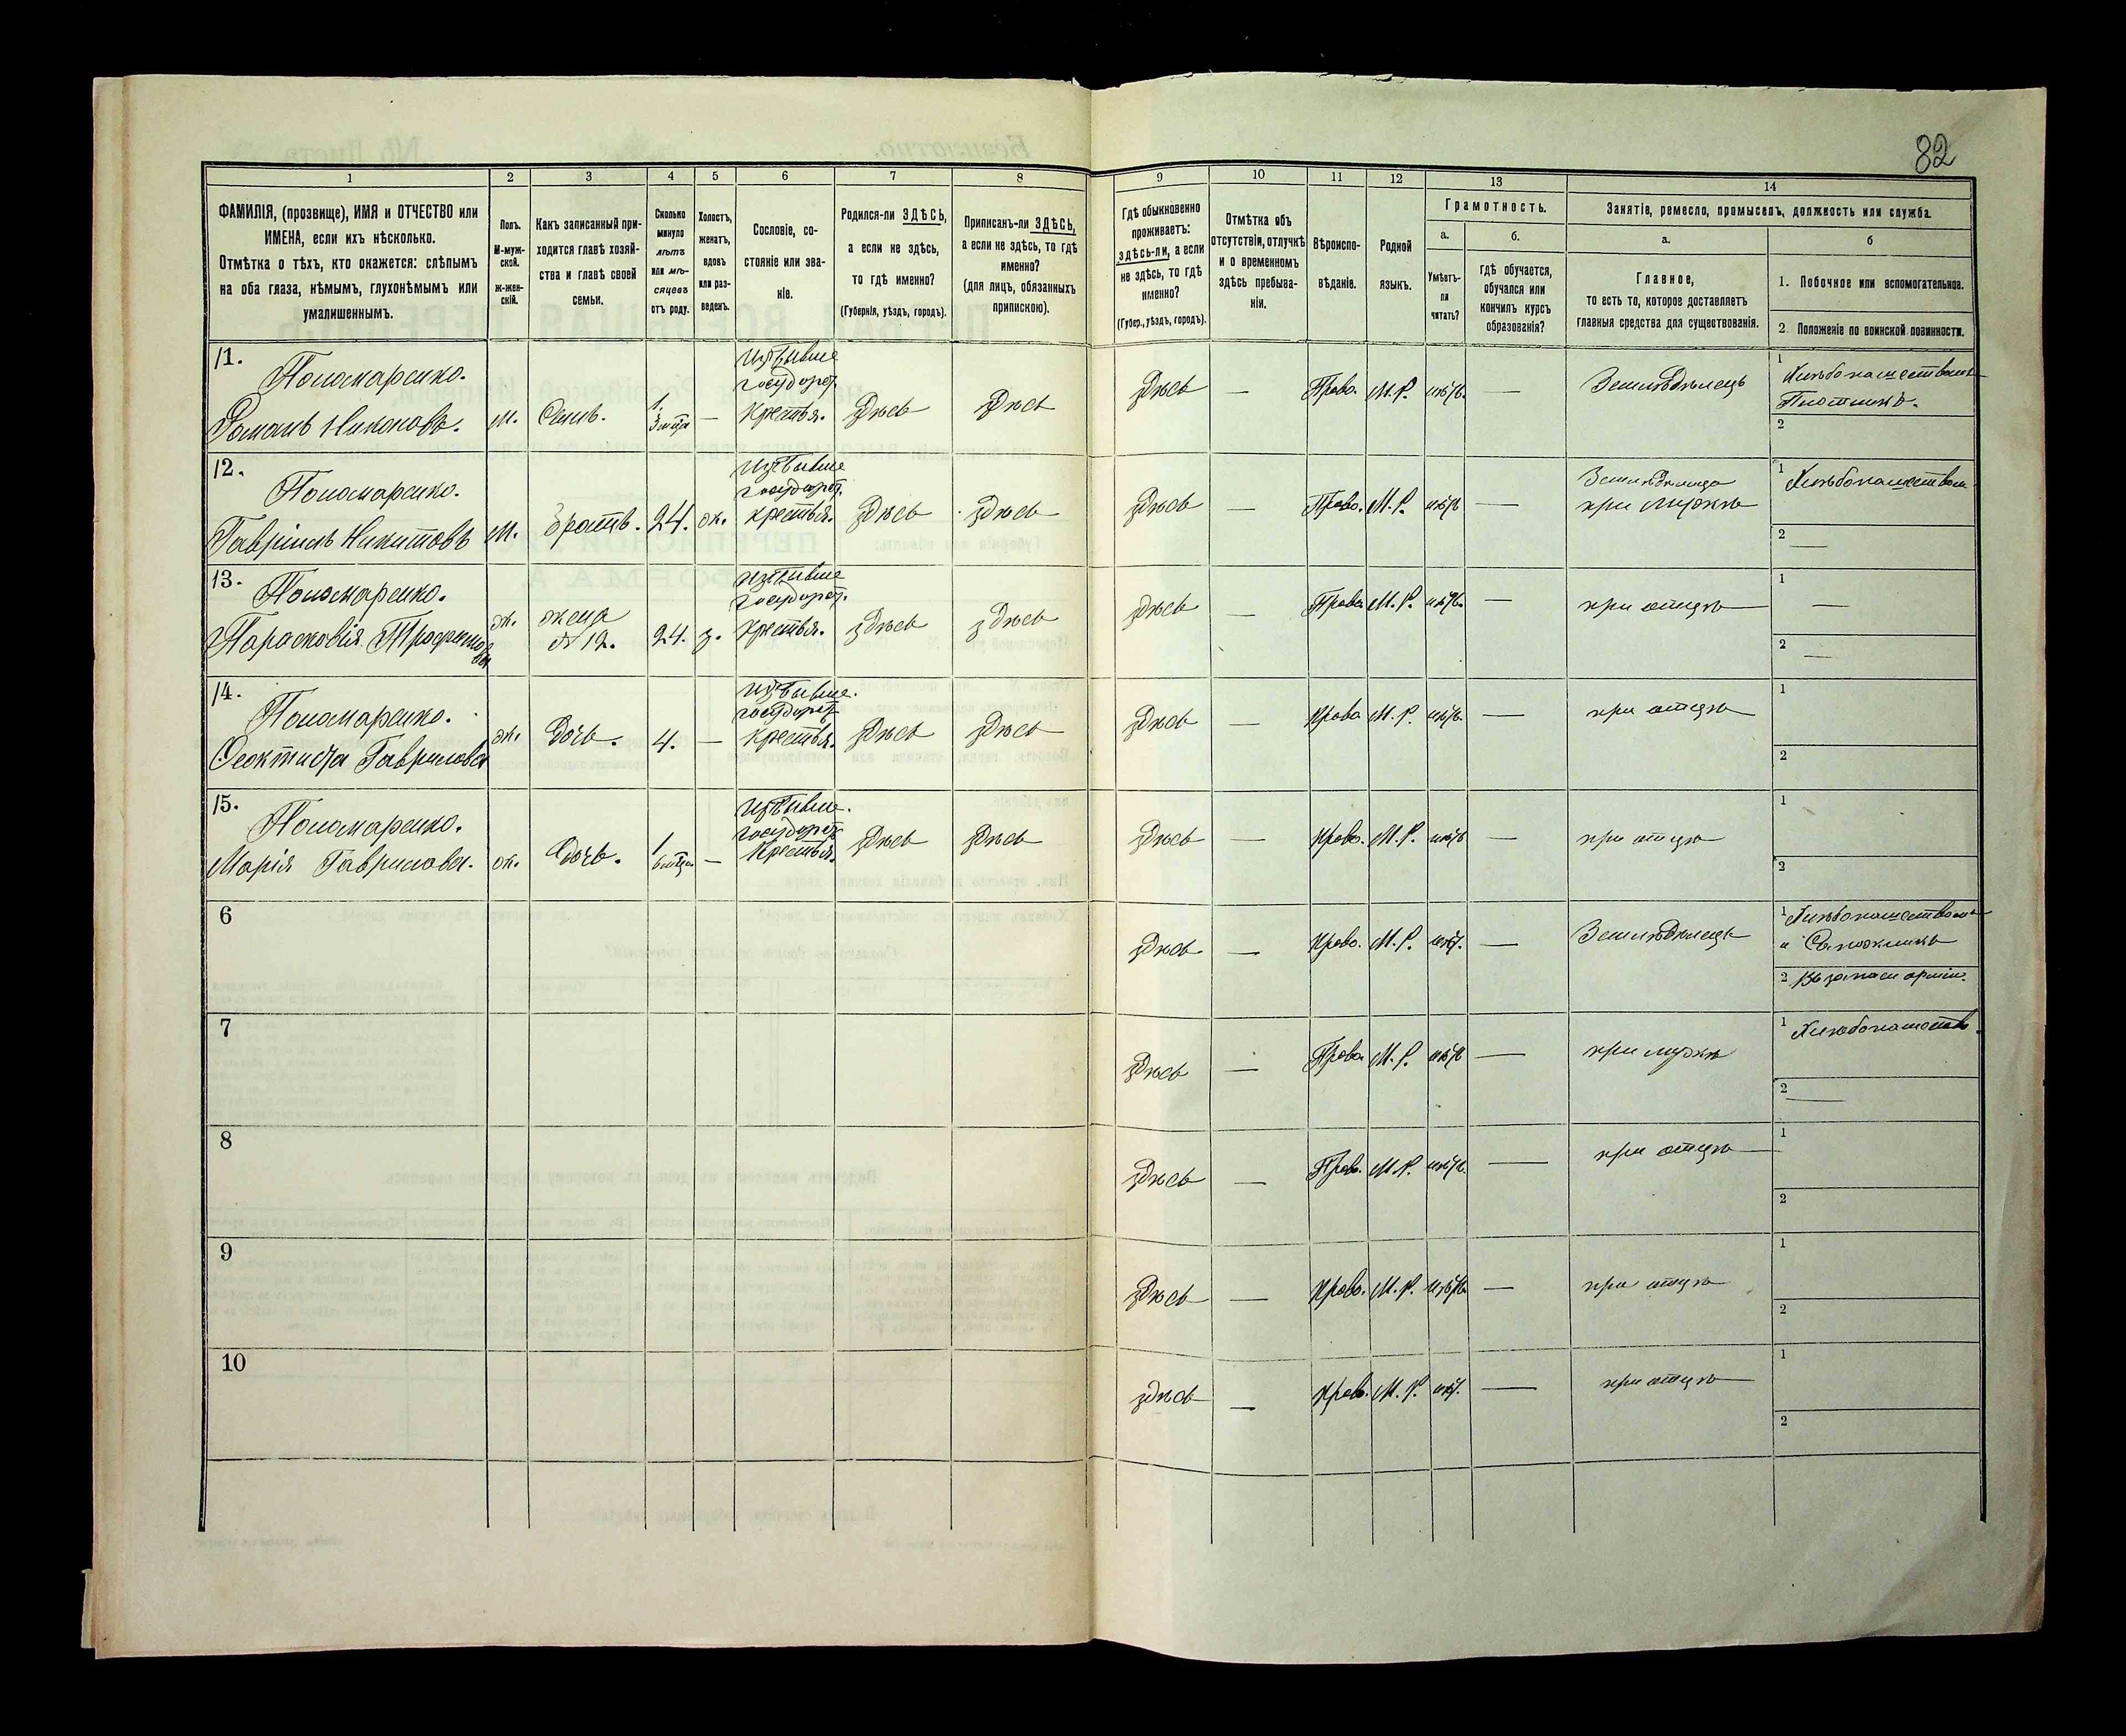 82
1 2 3 4 5 6 7 8 9 10 11 12 13 14
ФАМИЛІЯ, (прозвище), ИМЯ и ОТЧЕСТВО или
ИМЕНА, если ихъ нѣсколько.
Отмѣтка о тѣхъ, кто окажется: слѣпымъ
на оба глаза, нѣмымъ, глухонѣмымъ или
умалишеннымъ.
Полъ.
М-муж-
ской.
Ж-жен-
скій.
Какъ записанный при-
ходится главѣ хозяй-
ства и главѣ своей
семьи.
Сколько
минуло
лѣтъ
или мѣ-
сяцевъ
отъ роду.
Холостъ,
женатъ,
вдовъ
или раз-
веденъ.
Сословіе, со-
стояніе или зва-
ніе.
Родился-ли ЗДѢСЬ,
а если не здѣсь,
то гдѣ именно?
(Губернія, уѣздъ, городъ).
Приписанъ-ли ЗДѢСЬ,
а если не здѣсь, то гдѣ
именно?
(для лицъ, обязанныхъ
припискою).
Гдѣ обыкновенно
проживаетъ:
здѣсь-ли, а если
не здѣсь, то гдѣ
именно?
(Губер., уѣздъ, городъ).
Отмѣтка объ
отсутствіи, отлучкѣ
и о временномъ
здѣсь пребыва-
ніи.
Вѣроиспо-
вѣданіе.
Родной
языкъ.
Грамотность.
а.
Умѣетъ-
ли
читать?
б.
гдѣ обучается,
обучался или
кончилъ курсъ
образованія?
Занятіе, ремесло, промыселъ, должность или служба.
а.
Главное,
то есть то, которое доставляетъ
главныя средства для существованія.
б
1. Побочное или вспомогательное.
2. Положеніе по воинской повинности.
11.
Пономаренко.
м. Сынъ. 1. — Крестья. здѣсь здѣсь
здѣсь — Право. М. Р. нѣтъ. — Земледѣлецъ
1 Хлѣбопашествомъ
Плотникъ.
2
12.
Пономаренко.
Гавріилъ Никитовъ м. братъ. 24. ж. крестья. здѣсь здѣсь
здѣсь — Право. М. Р. нѣтъ —
при мужѣ
1 Хлѣбопашеством
2 —
13.
Пономаренко.
Парасковія Трофимова ж. жена
№ 12. 24. з. крестья. здѣсь здѣсь
здѣсь — Право М. Р. нѣтъ. — при отцѣ
1 —
2 —
14.
Пономаренко.
Гаврилова ж. дочь. 4. — крестья. здѣсь здѣсь
здѣсь — Право М. Р. нѣтъ. — при отцѣ
1
2
15.
Пономаренко.
Марія Гаврилова. ж. дочь. 1 — Крестья. здѣсь здѣсь
здѣсь — Право. М. Р. нѣтъ — при отцѣ
1
2
6
здѣсь — Право. М. Р. нѣт. — Земледѣлецъ
1 Хлѣбопашествомъ
и
2 Въ запасѣ арміи.
7
здѣсь — Право М. Р. нѣтъ — при мужѣ
1 Хлѣбопашеств.
2 —
8
здѣсь — Право. М. Р. нѣтъ. — при отцѣ
1
2
9
здѣсь — Право. М. Р. нѣтъ. — при отцѣ
1
2
10
здѣсь — Право. М. Р. нѣт. — при отцѣ
1
2